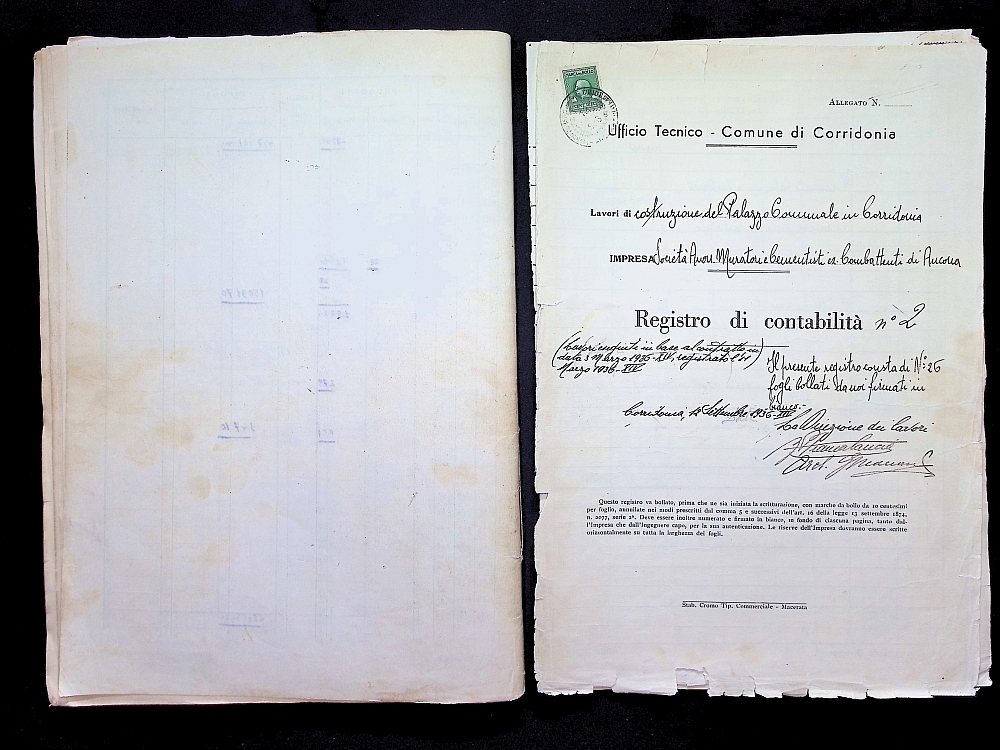 ALLEGATO N.
Ufficio Tecnico - Comune di Corridonia
Lavori di costruzione del Palazzo Comunale in Corridonia
IMPRESA Società Anon. Muratori e Cementisti ex Combattenti di Ancona
Registro di contabilità n° 2
(Lavori eseguiti in base al contratto in
data 3 Marzo 1936-XIV, registrato l'
Marzo 1936-XIV)
Il presente registro consta di N°: 26
fogli bollati da noi firmati in
bianco.-
Corridonia, Settembre 1936-XIV
La Direzione dei Lavori
Arch.
Questo registro va bollato, prima che ne sia iniziata la scritturazione, con marche da bollo da 10 centesimi
per foglio, annullate nei modi prescritti dal comma 5 e successivi dell'art. 16 della legge 13 settembre 1874,
n. 2077, serie 2ª. Deve essere inoltre numerato e firmato in bianco, in fondo di ciascuna pagina, tanto dal-
l'Impresa che dall'ingegnere capo, per la sua autenticazione. Le riserve dell'Impresa dovranno essere scritte
orizzontalmente su tutta la larghezza dei fogli.
Stab. Cromo Tip. Commerciale - Macerata